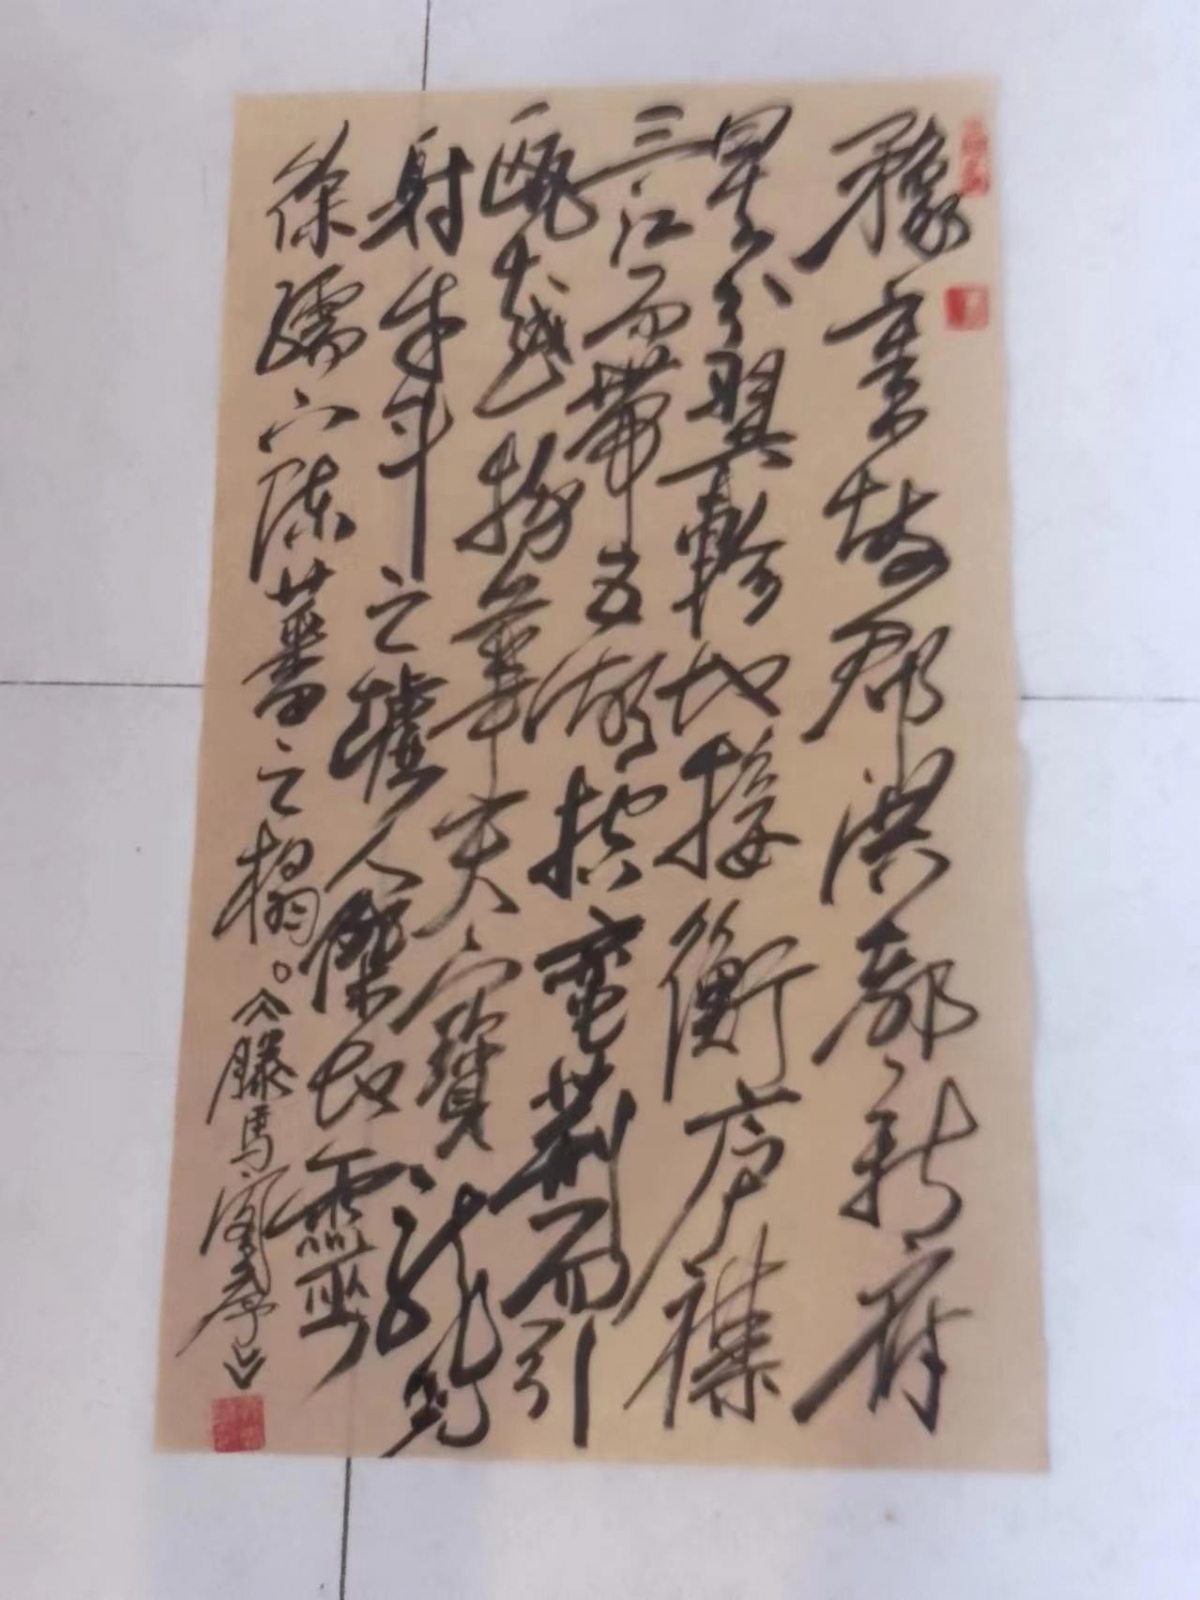 豫章故郡洪都新府
星分翼軫地接衡庐襟
三江而帶五湖控蛮荆而引
瓯越物華天寶龍光
射牛斗之墟人傑地靈
徐孺下陈蕃之榻。《滕王閣序》